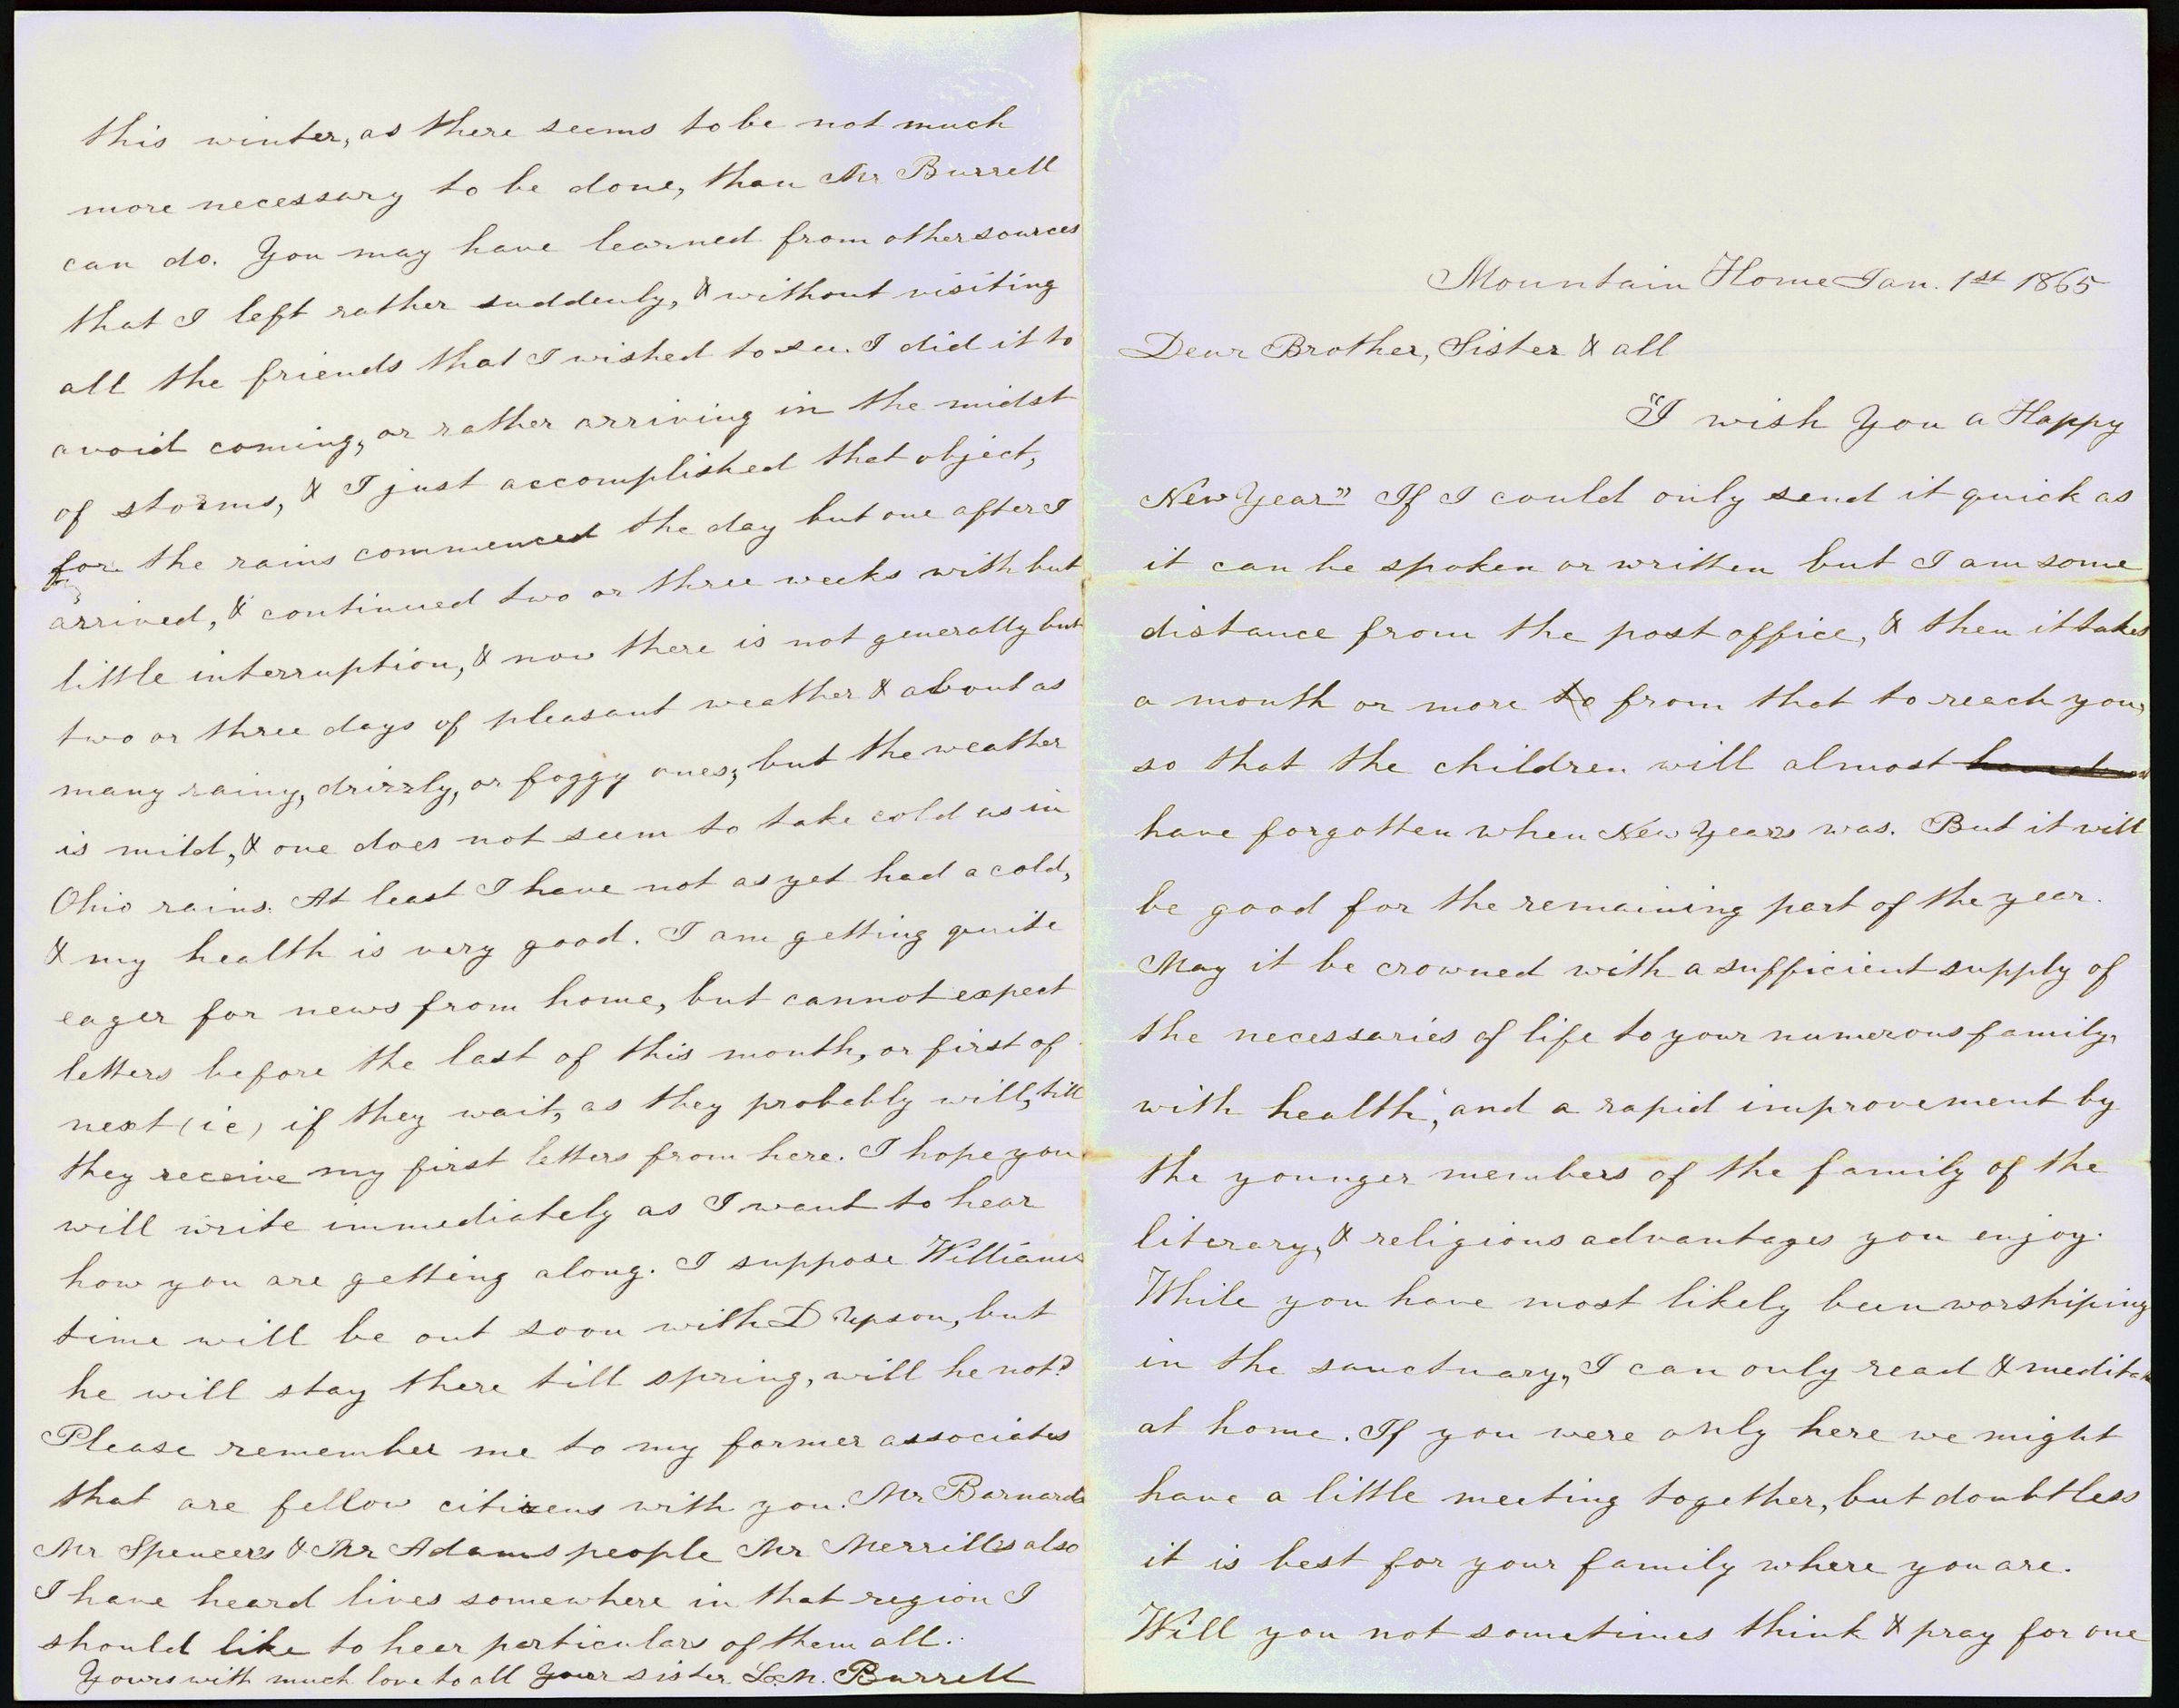 Mountain Home Jan. 1st 1865
Dear Brother, Sister & all
"I wish You a Happy
New Year" If I could only send it quick as
it can be spoken or written but I am some
distance from the post office, & then it takes
a month or more to from that to reach you,
so that the children will almost
have forgotten when New Years was. But it will
be good for the remaining part of the year.
May it be crowned with a sufficient supply of
the necessaries of life to your numerous family,
with health, and a rapid improvement by
the younger members of the family of the
literary, & religious advantages you enjoy.
While you have most likely been worshiping
in the sanctuary, I can only read & meditate
at home. If you were only here we might
have a little meeting together, but doubtless
it is best for your family where you are.
Will you not sometimes think & pray for one
this winter, as there seems to be not much
more necessary to be done, than Mr Burrell
can do. You may have learned from other sources
that I left rather suddenly, & without visiting
all the friends that I wished to see. I did it to
avoid coming, or rather arriving in the midst
of storms, & I just accomplished that object,
for the rains commenced the day but one after I
arrived, & continued two or three weeks with but
little interruption, & now there is not generally but
two or three days of pleasant weather & about as
many rainy, drizzly, or foggy ones; but the weather
is mild, & one does not seem to take cold as in
Ohio rains. At least I have not as yet had a cold,
& my health is very good. I am getting quite
eager for news from home, but cannot expect
letters before the last of this month, or first of
next (ie) if they wait, as they probably will, till
they receive my first letters from here. I hope you
will write immediately as I want to hear
how you are getting along. I suppose Williams
time will be out soon with D Upson, but
he will stay there till spring, will he not?
Please remember me to my former associates
that are fellow citizens with you. Mr Barnards
Mr Spencer's & Mr Adams people Mr Merrills also
I have heard lives somewhere in that region I
should like to hear particulars of them all.
Yours with much love to all Your sister L. M. Burrell